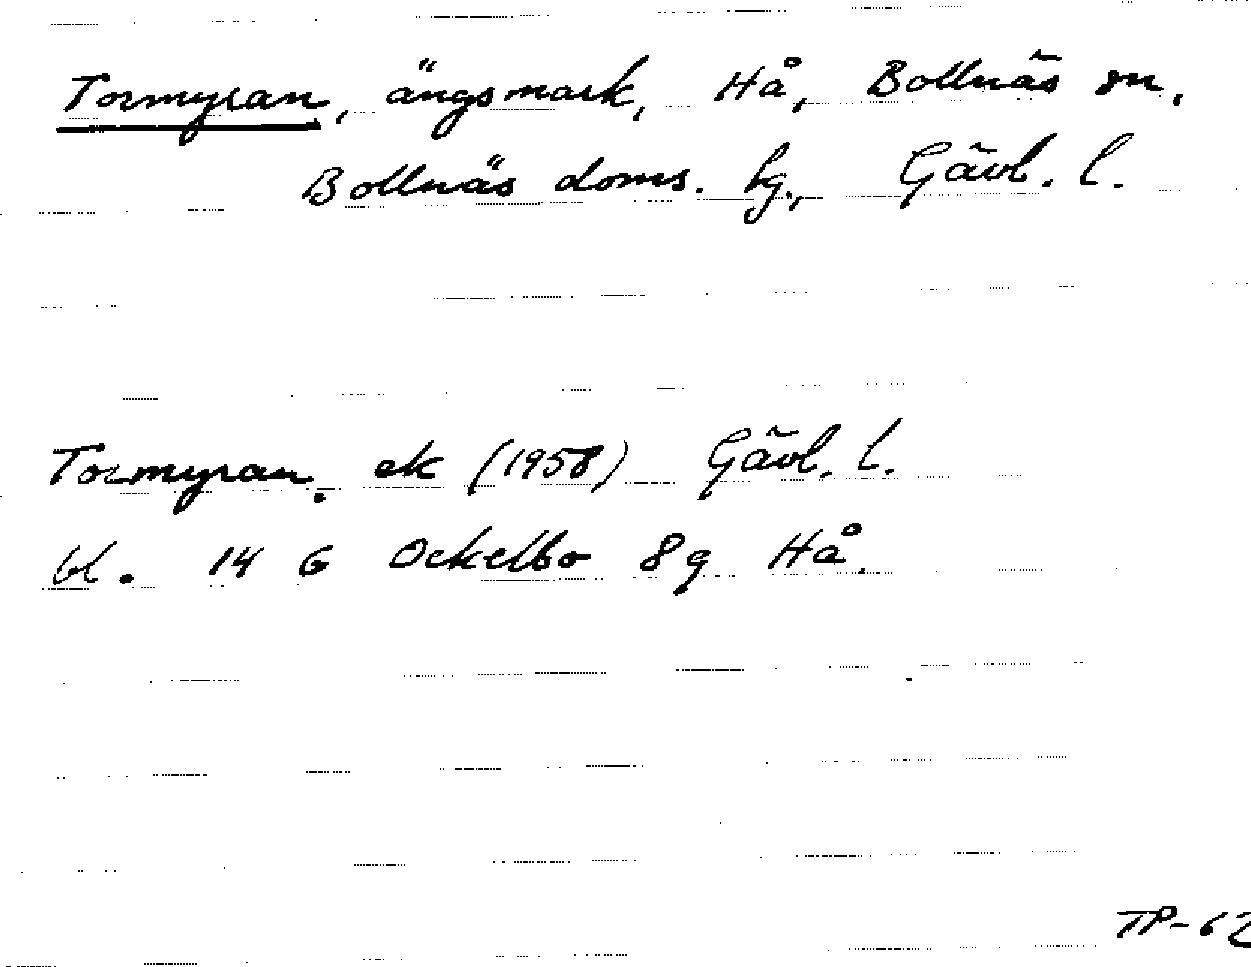 Tormyran, ängsmark, Hå, Bollnäs sn,
Bollnäs doms. lg., Gävl. l.
Tormyran. ek (1958) Gävl. l.
bl. 14 G Ockelbo 8g Hå.
TP-62